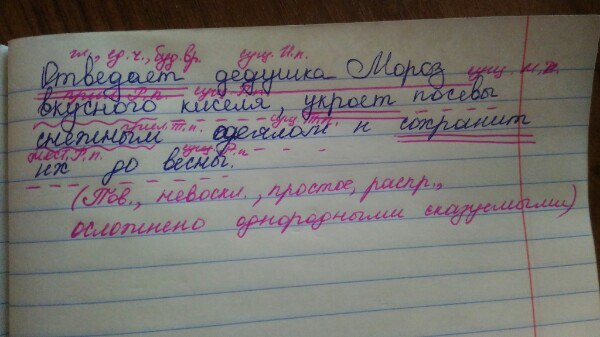 гл., ед.ч., буд.вр. сущ. И.п.
Отведает дедушка Мороз сущ. И.п.
прил. Р.п. сущ. Р.п.
вкусного киселя, укроет посевы
прил. Т.п. сущ. Т.п.
снежным одеялом и сохранит
мест. Р.п. сущ. Р.п.
их до весны.
(Пов., невоскл., простое, распр.,
осложнено однородными сказуемыми)